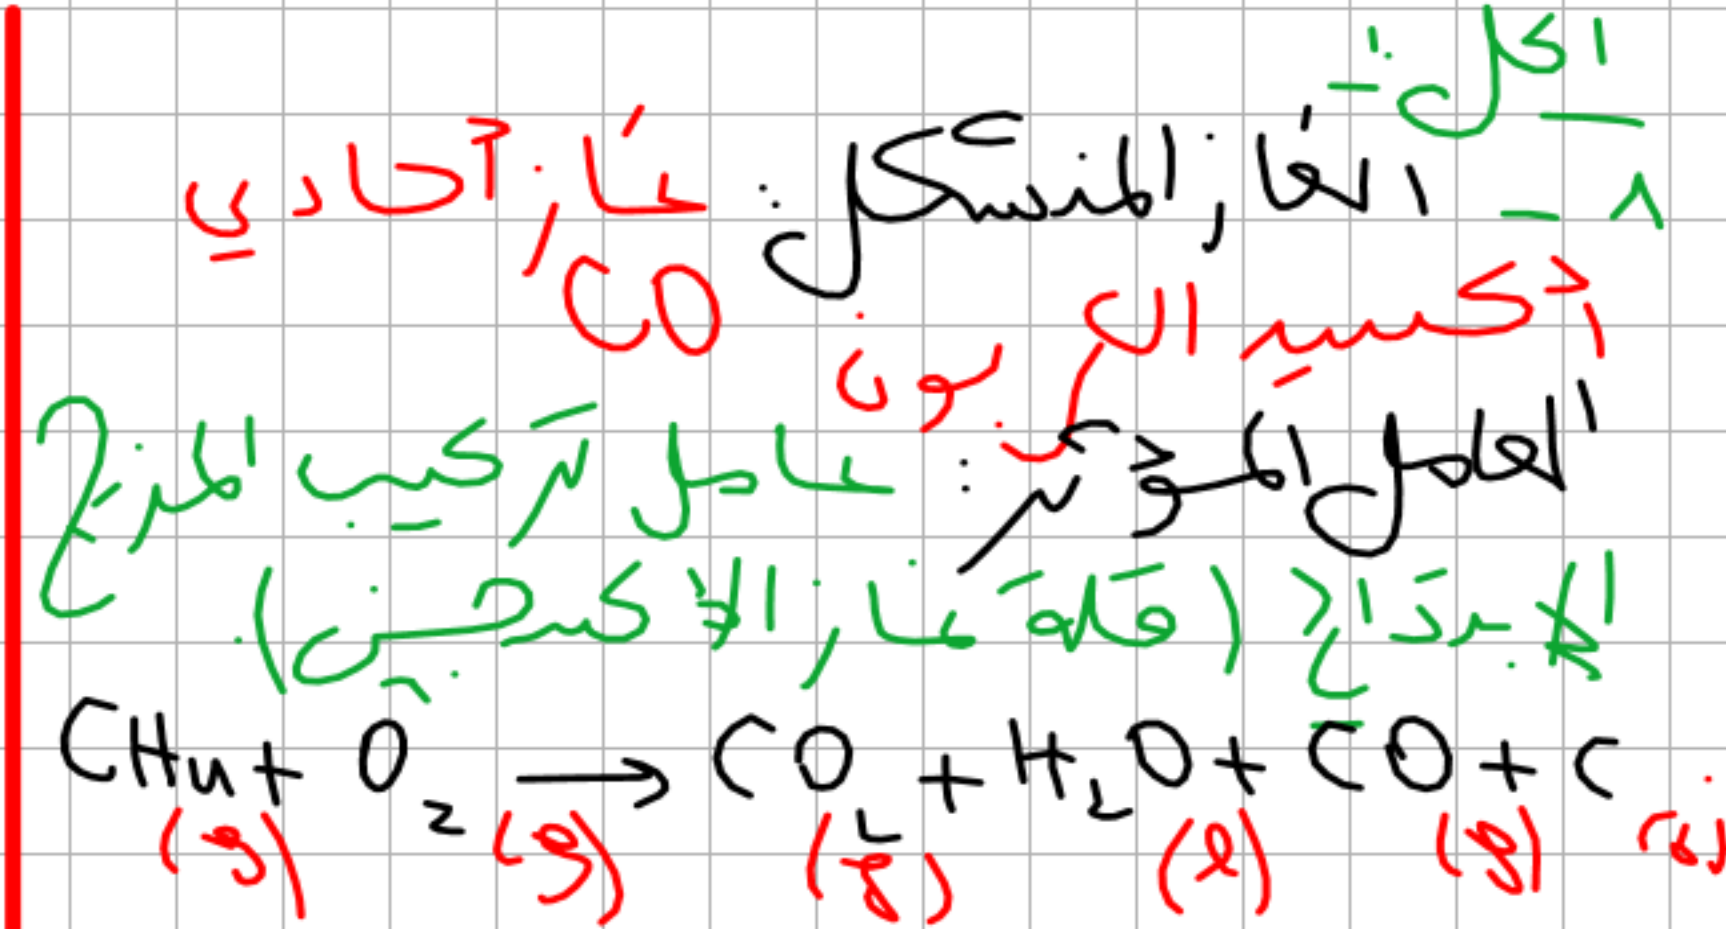 الحل :-
1- الغاز المتشكل : غاز أحادي
أكسيد الكربون CO
العامل المؤثر : عامل تركيب المزيج
الابتدائي (قلة غاز الأكسجين).
CH4 + O2 → CO2 + H2O + CO + C
(g) (g) (g) (l) (g) (s)